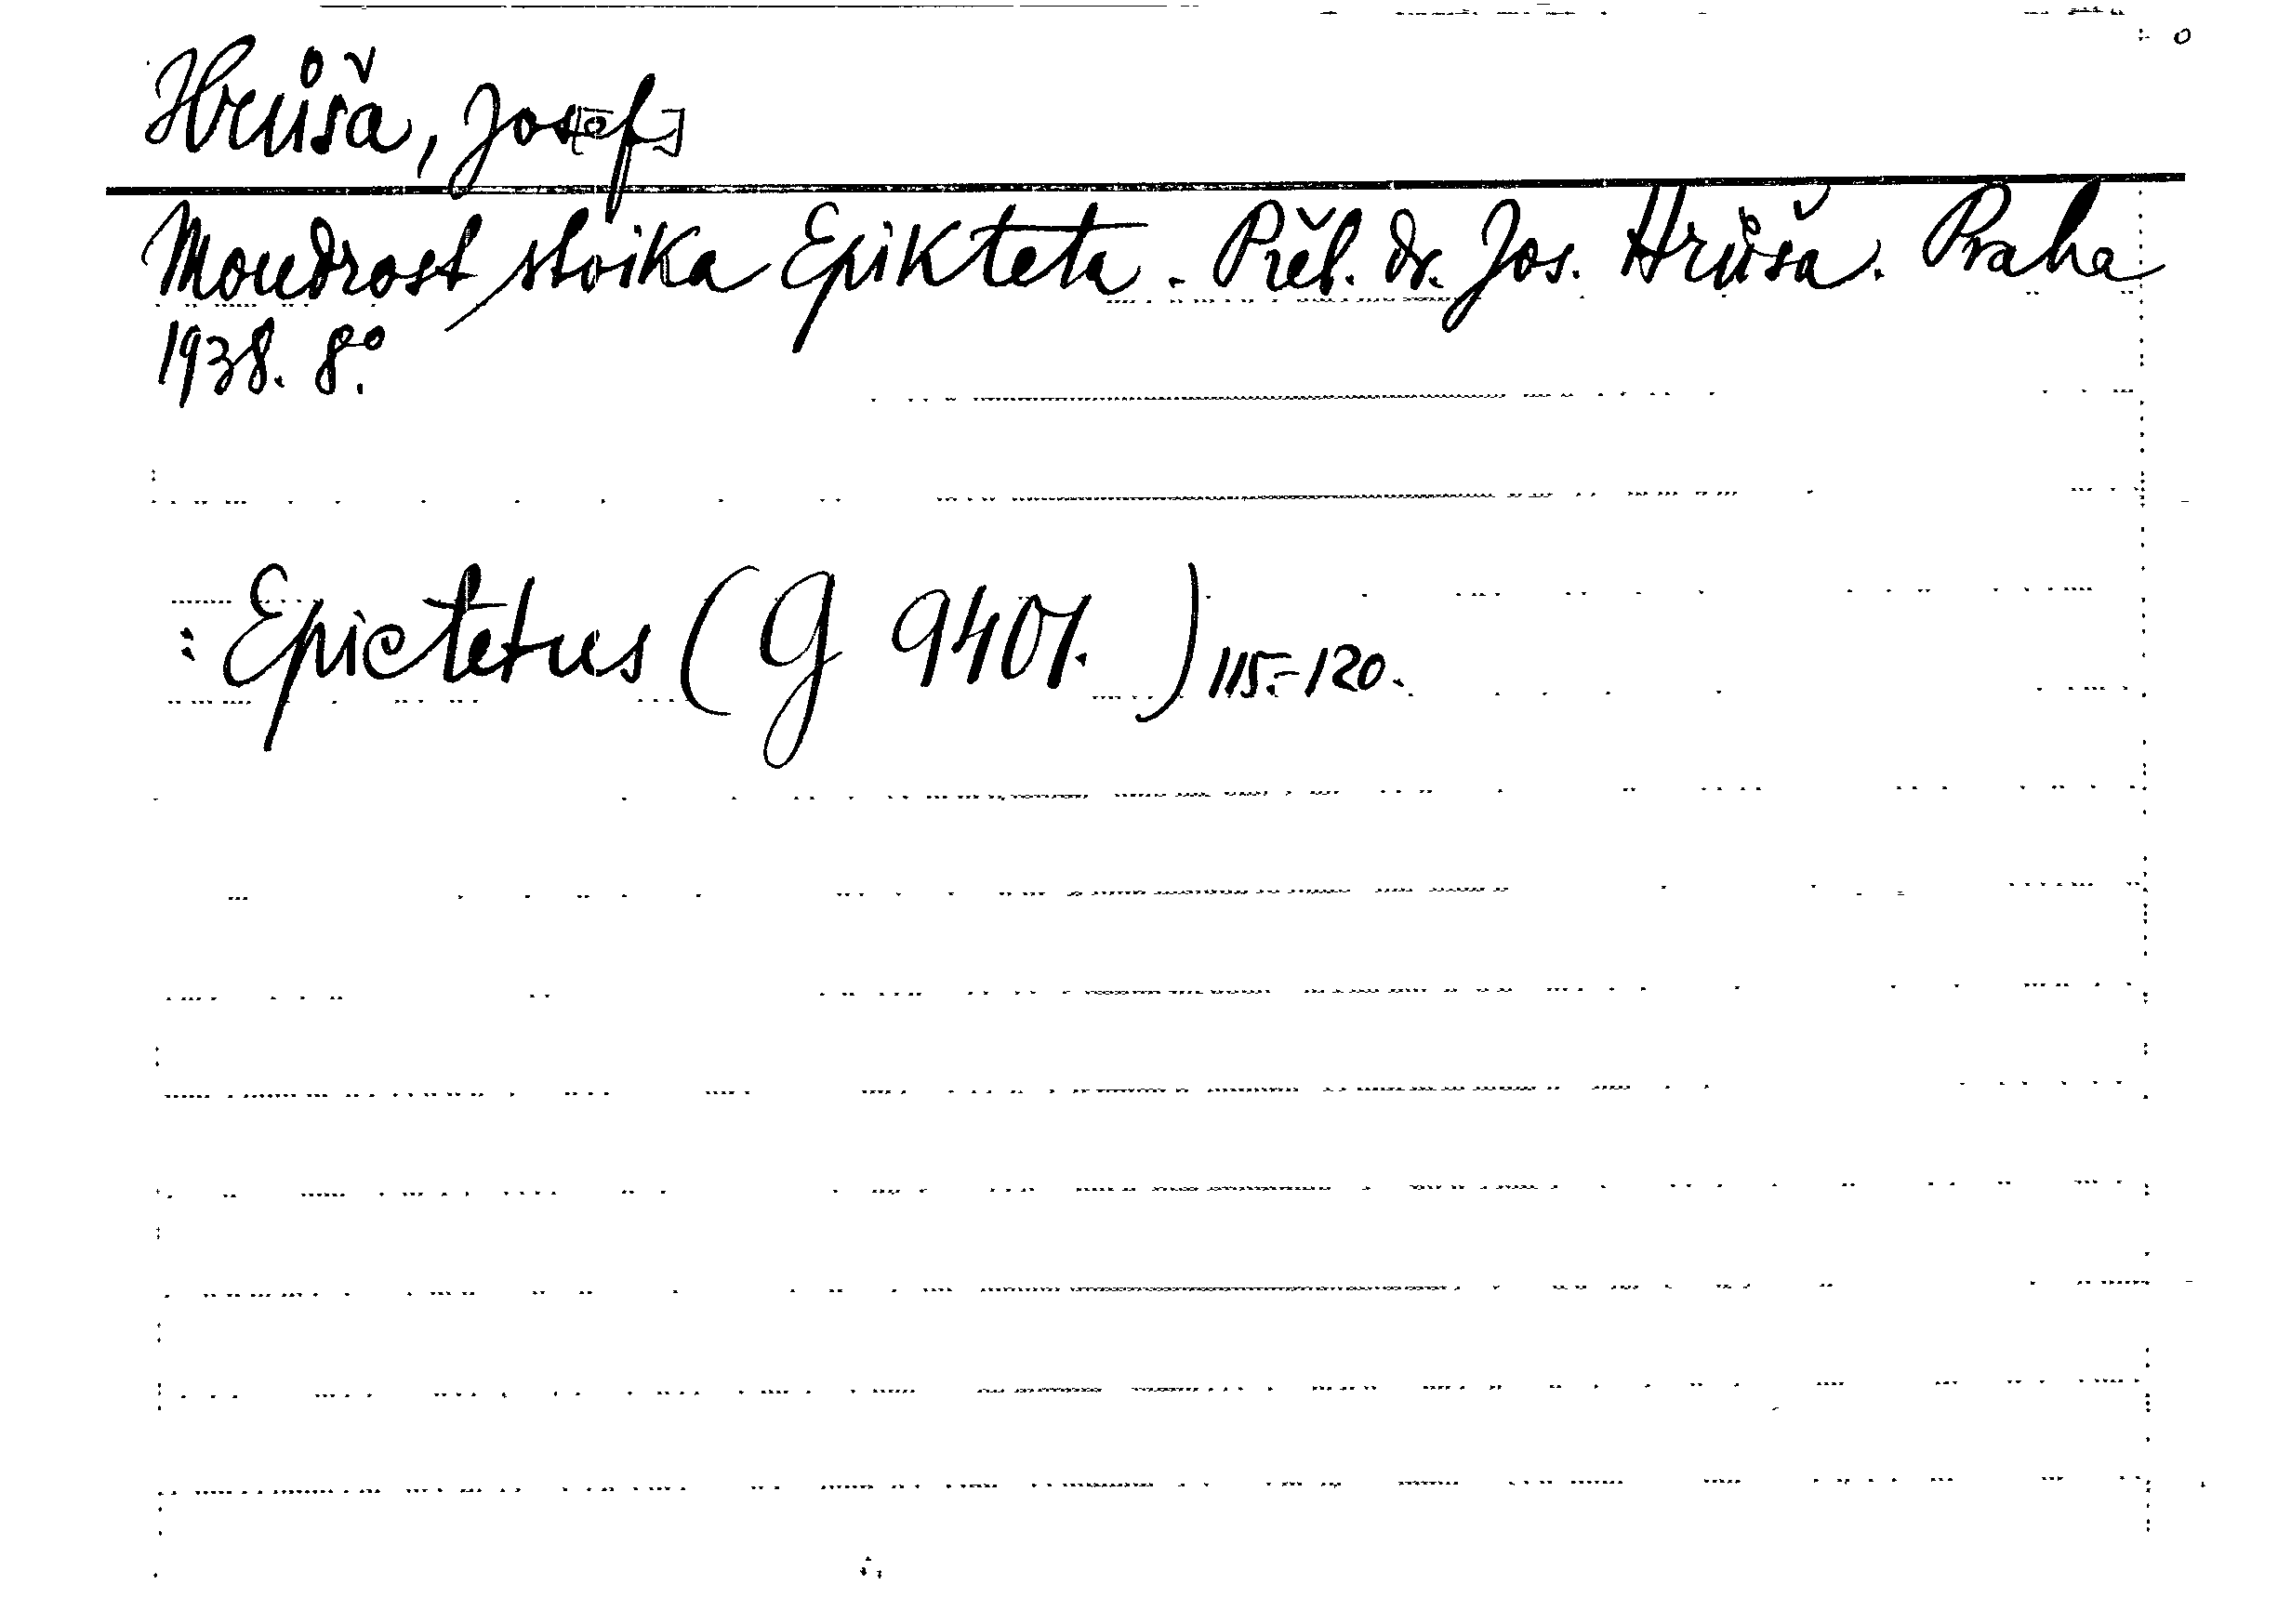 Hrůša, Jos[ef]
Moudrost stoika Epikteta. Přel. dr. Jos. Hrůša. Praha
1938. 8°.
: Epictetus (G 9407. ) 115.-120.